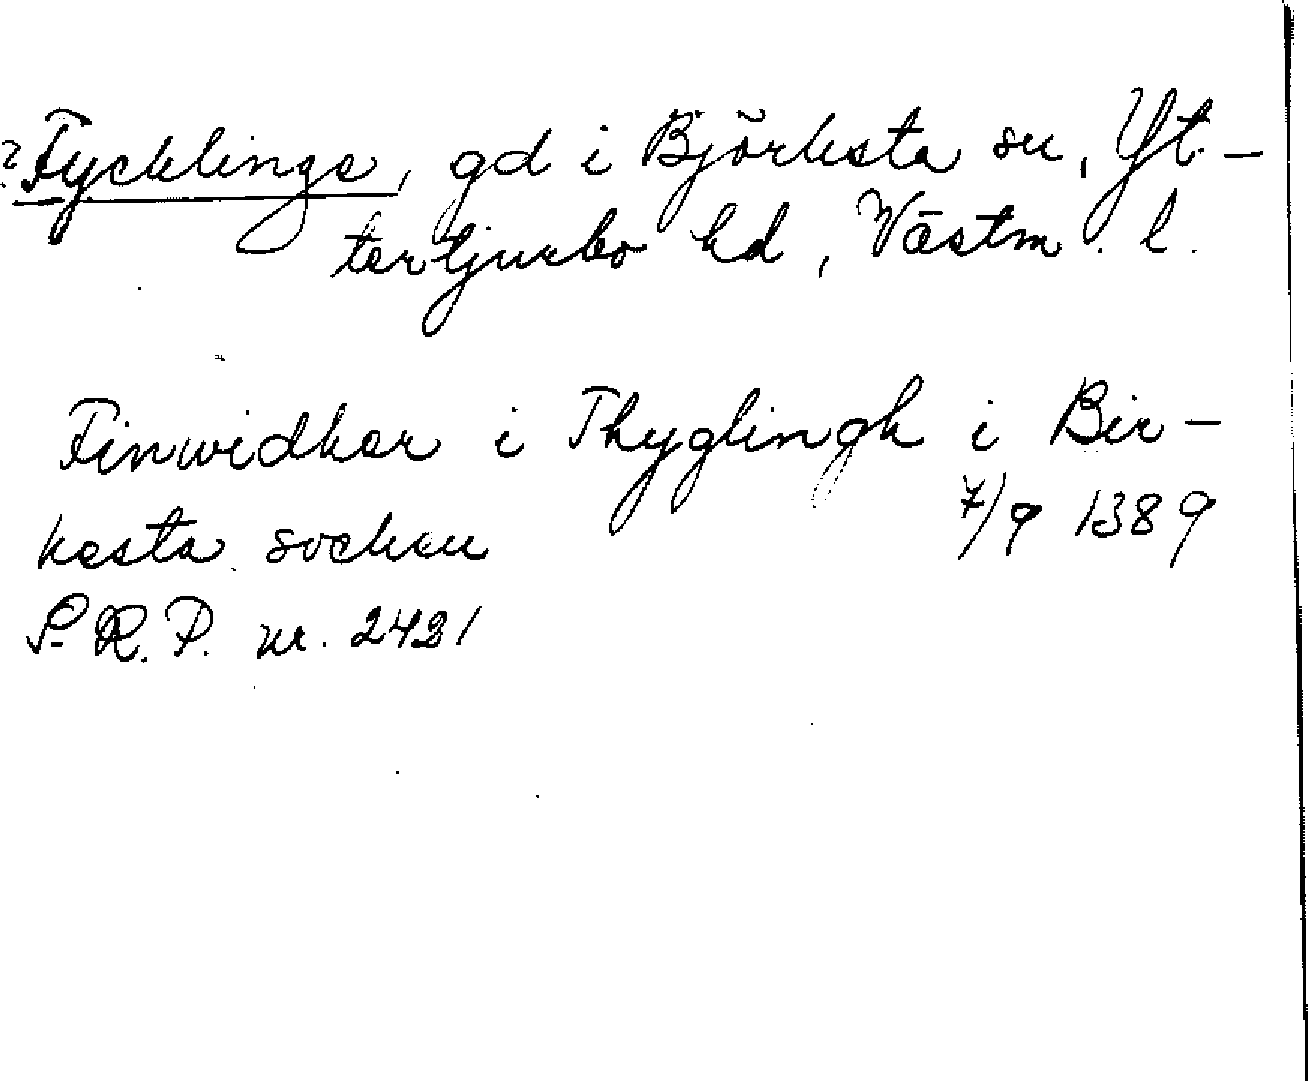 ? Fycklinge, gd i Björksta sn, Yt-
tertjurbo hd, Västm. l.
Finwidher i Thyglingh i Bir-
kesta sochen 7/9 1389
S.R.P. nr. 2421